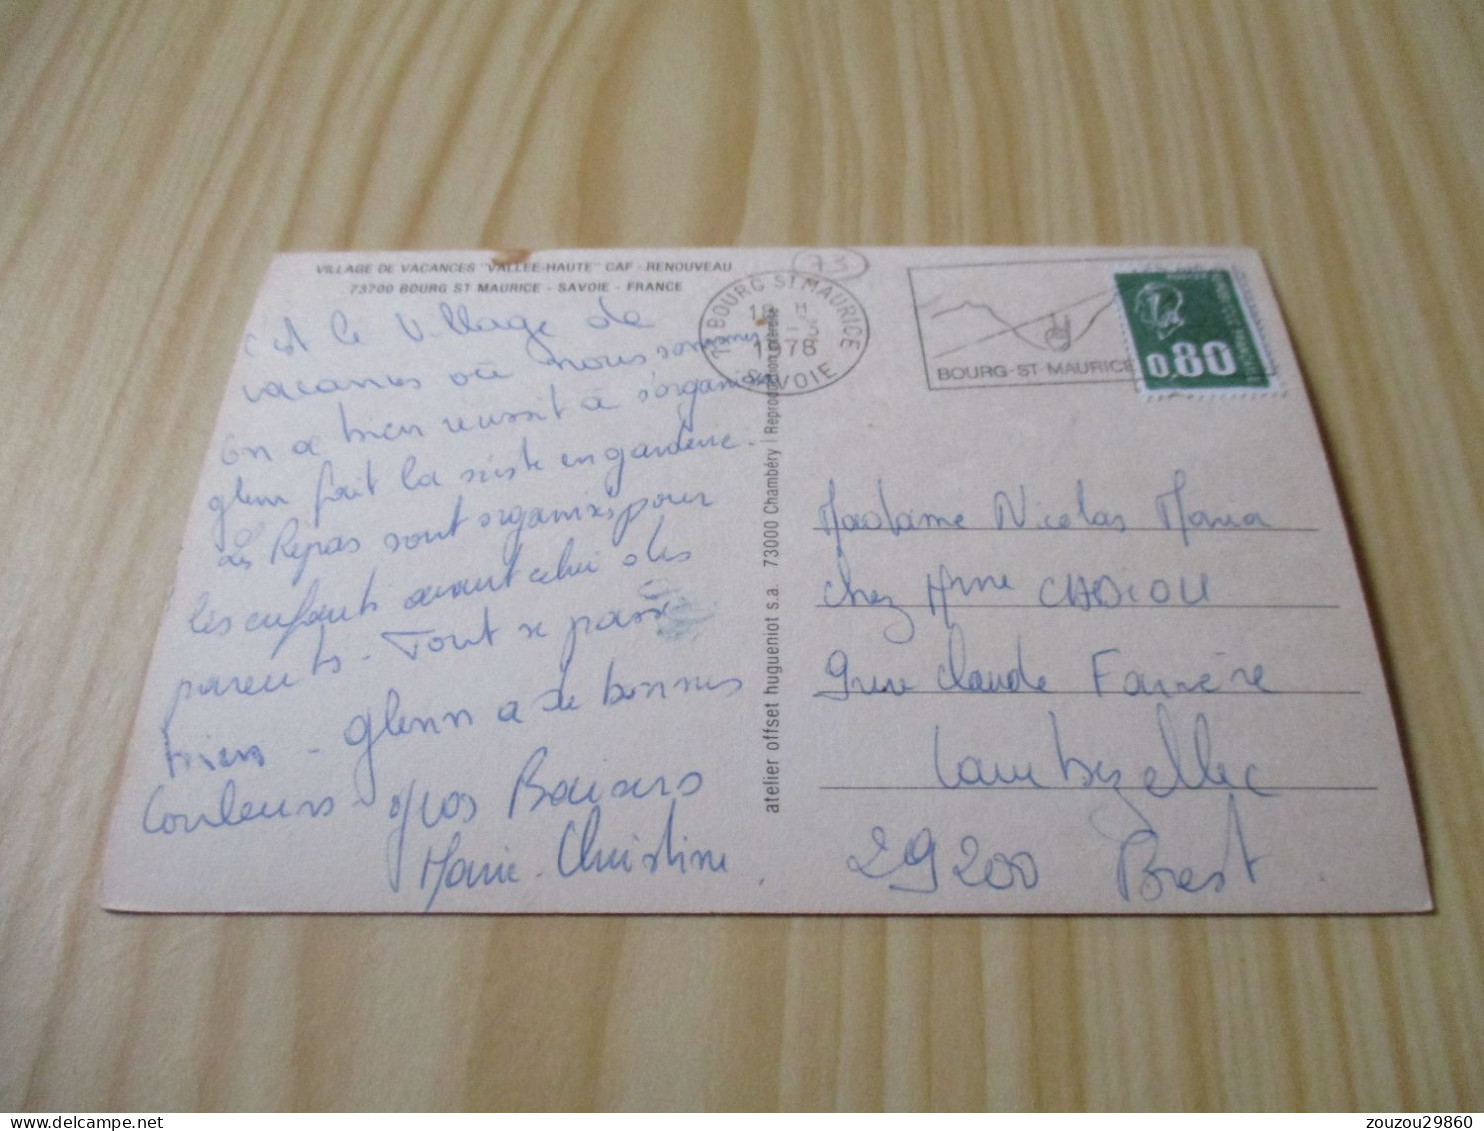 VILLAGE DE VACANCES "VALLEE-HAUTE" CAF - RENOUVEAU
73700 BOURG ST MAURICE - SAVOIE - FRANCE
c'est le Village de
vacances où nous sommes
on a bien reussit à s'organiser
glenn fait la sieste en garderie.
Les Repas sont organisés pour
les enfants avant celui des
parents - Tout se passe
bien - glenn a de bonnes
Couleurs - Gros Baisers
Marie-Christine.
73
73 BOURG ST MAURICE
18 H
1978
SAVOIE
BOURG-ST-MAURICE
0,80
atelier offset hugueniot s.a. 73000 Chambéry / Reproduction interdite
Madame Nicolas Maria
chez Mme CADIOU
9 rue Claude Farrère
Lambezellec
29200 Brest
zouzou29860